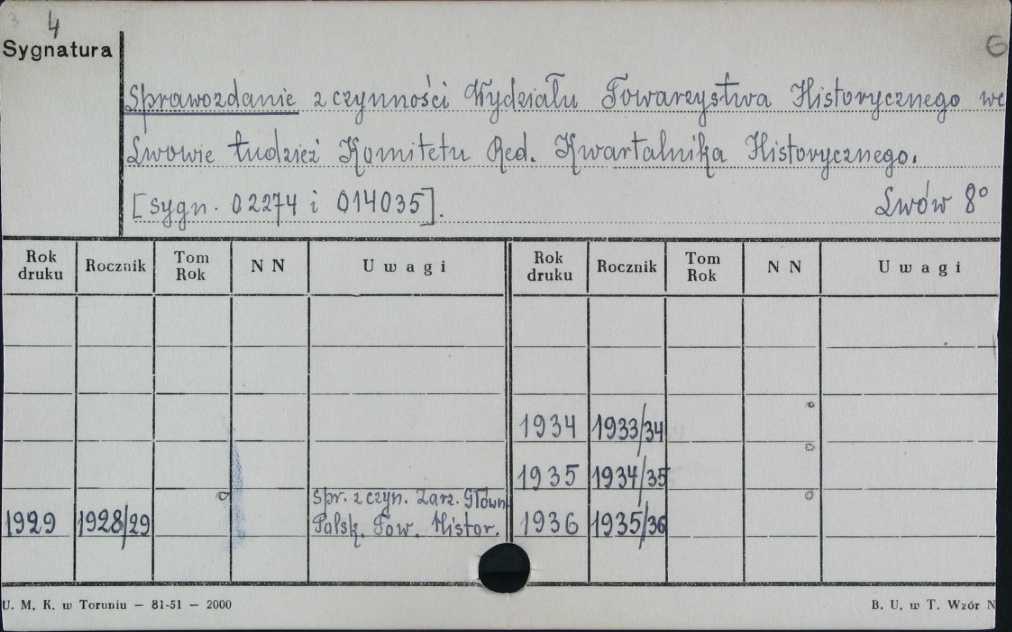 3 4
Sygnatura
6
Sprawozdanie z czynności Wydziału Towarzystwa Historycznego we
Lwowie tudzież Komitetu Red. Kwartalnika Historycznego.
[sygn. 02274 i 014035]. Lwów 8°
Rok druku Rocznik Tom Rok NN Uwagi Rok druku Rocznik Tom Rok NN Uwagi
1934 1933/34
1935 1934/35
Spr. z czyn. Zarz. Główn.
1929 1928/29 Polsk. Tow. Histor. 1936 1935/36
U. M. K. w Toruniu — 81-51 — 2000 B. U. w T. Wzór N